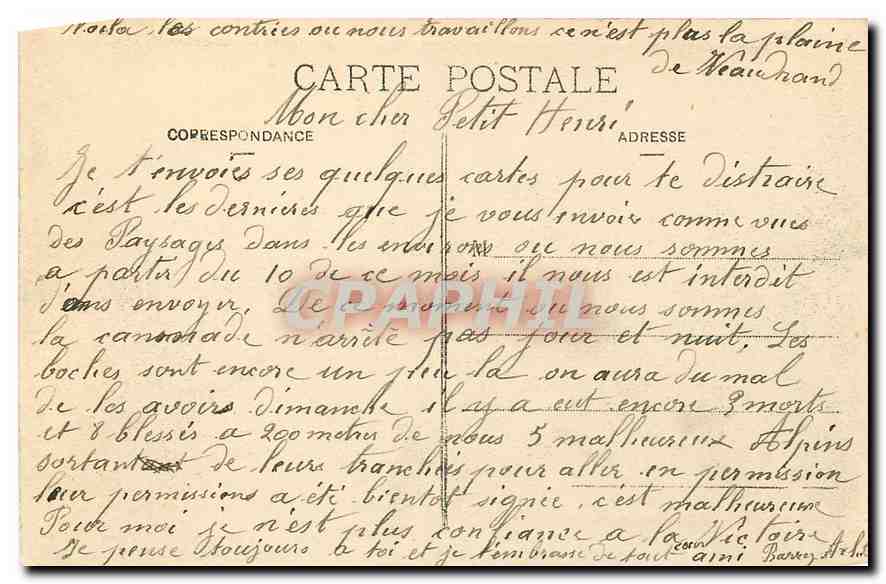 Voila les contries ou nous travaillons ce n'est plus la plaine
de Veauchand
CARTE POSTALE
Mon cher Petit Henri
CORRESPONDANCE
ADRESSE
Je t'envoies ses quelques cartes pour te distraire
c'est les dernieres que je vous envoie comme vues
des Paysages dans les environs ou nous sommes
a partir du 10 de ce mois il nous est interdit
d'ens envoyer. De ce moment ou nous sommes
la canonnade n'arrête pas jour et nuit. Les
boches sont encore un peu la on aura du mal
de les avoirs dimanche il y a eut encore 3 morts
et 8 blessés a 200 metres de nous 5 malheureux Alpins
sortant de leurs tranchés pour aller en permission
leur permissions a été bientot signée, c'est malheureux
Pour moi je n'est plus confiance a la Victoire
Je pense toujours a toi et je t'embrasse de tout coeur ami Barrez
CPAPHIL